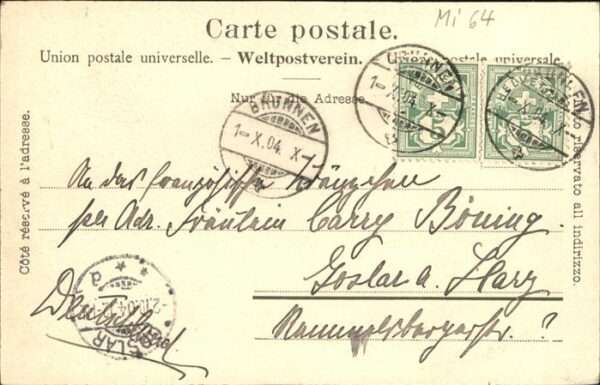 Mi 64
Carte postale.
Union postale universelle. – Weltpostverein. – Unione postale universale.
Nur für die Adresse
Côté réservé à l'adresse.
Lato riservato all indirizzo.
BRUNNEN
1-X.04. X-
BRUNNEN
1-X.04. X-
1-X.04. X-
5
An das französische
per Adr. Fräulein Carry Böning.
Goslar a. Harz
Rammelsbergerstr. ?
Deutschland
GOSLAR